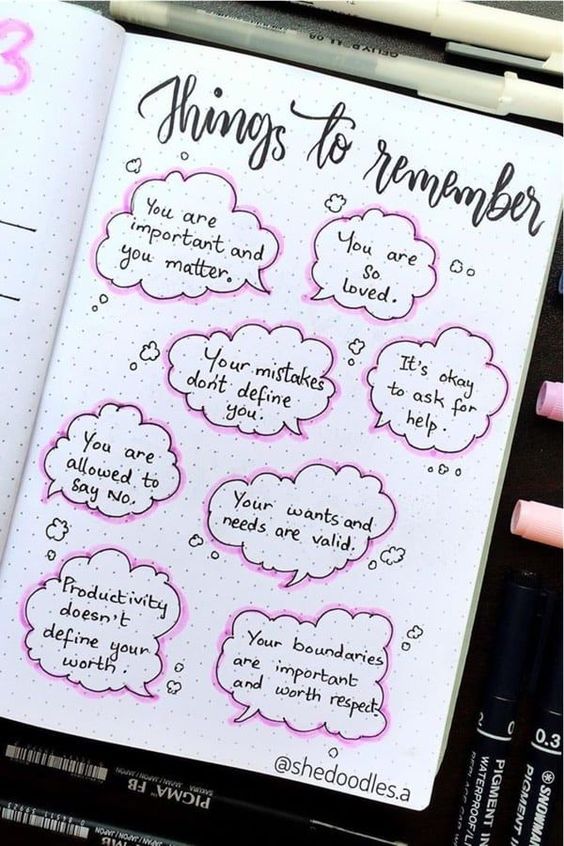 3
Things to remember
You are
important and
you matter.
You are
so
loved.
Your mistakes
don't define
you.
It's okay
to ask for
help.
You are
allowed to
say No.
Your wants and
needs are valid.
Productivity
doesn't
define your
worth.
Your boundaries
are important
and worth respect.
@shedoodles.a
PIGMA FB
SAKURA
JAPAN/JAPON
PIGMENT IN
WATERPROOF/L
0.3
SNOWMAN
PIGMENT